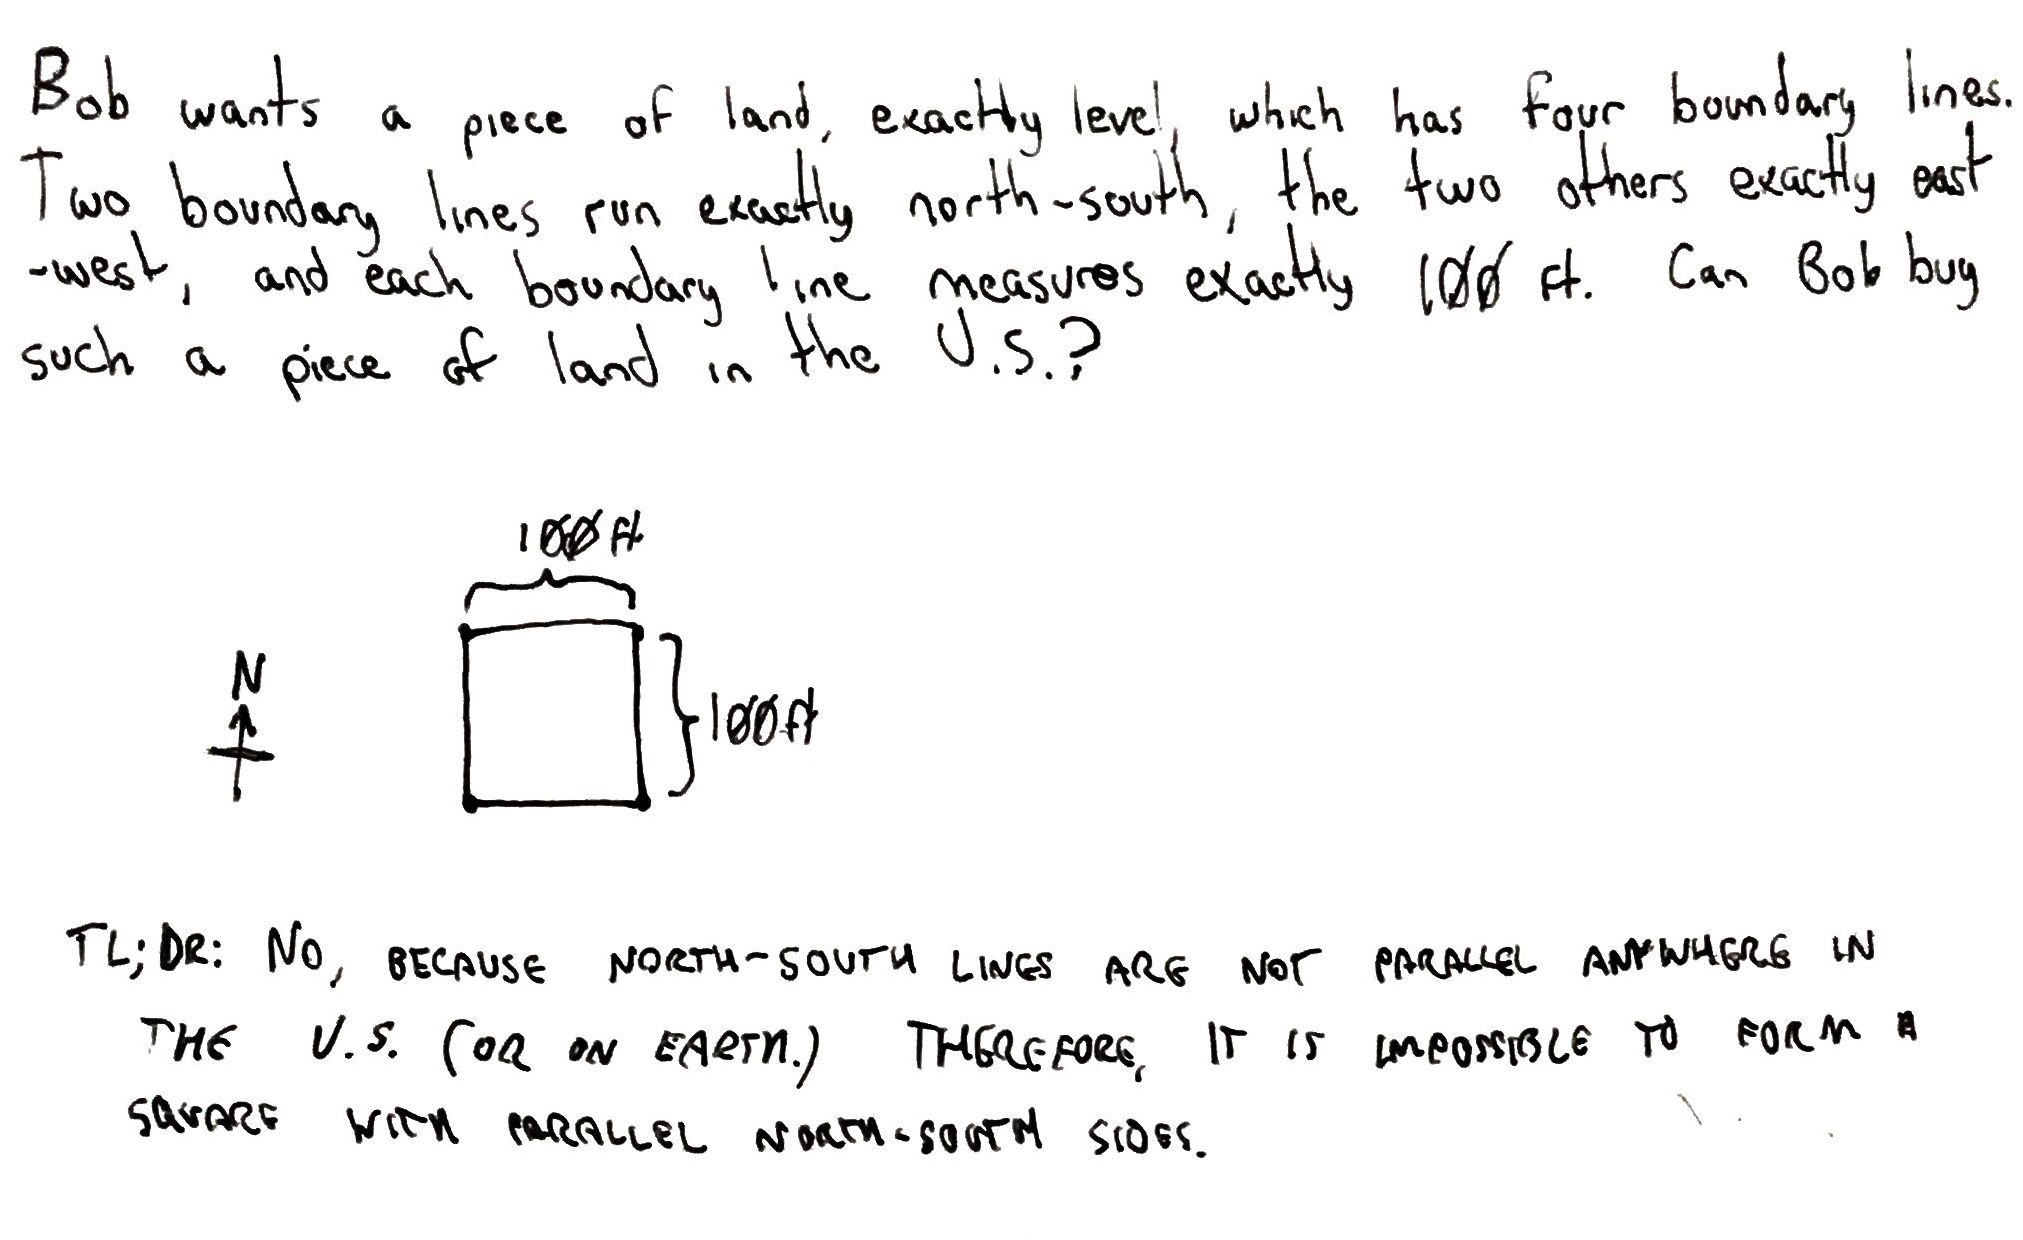 Bob wants a piece of land, exactly level, which has four boundary lines.
Two boundary lines run exactly north-south, the two others exactly east
-west, and each boundary line measures exactly 100 ft. Can Bob buy
such a piece of land in the U.S.?
100 ft
N
100 ft
TL;DR: NO, BECAUSE NORTH-SOUTH LINES ARE NOT PARALLEL ANYWHERE IN
THE U.S. (OR ON EARTH.) THEREFORE, IT IS IMPOSSIBLE TO FORM A
SQUARE WITH PARALLEL NORTH-SOUTH SIDES.